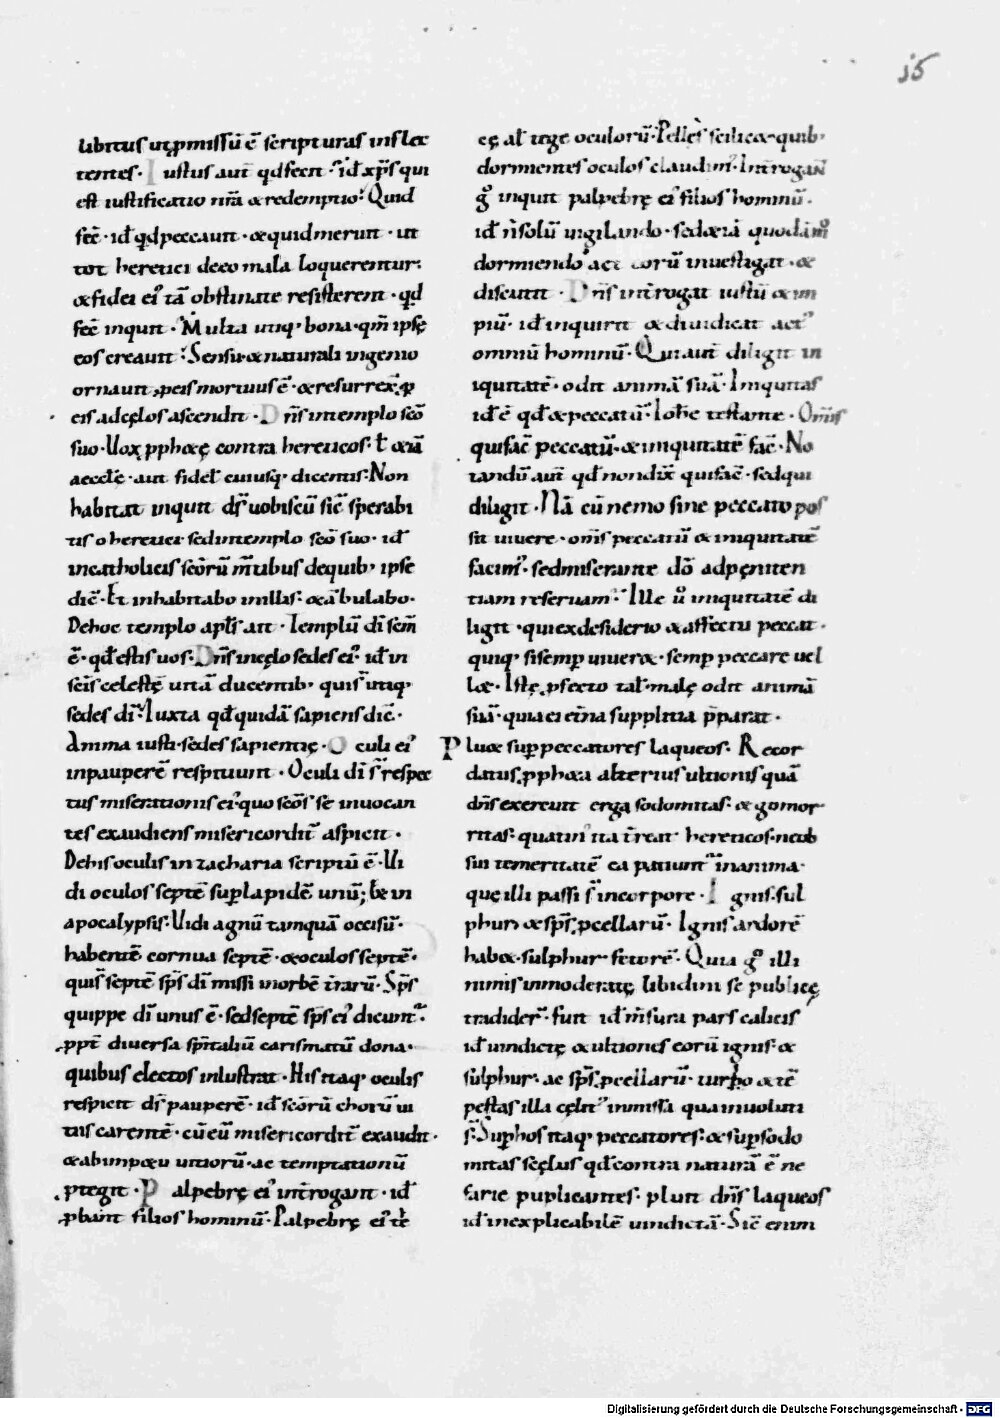 15
libitus utpmissū ē scripturas inflec
tentes · Iustus aut̄ qd fecit · id xp̄s qui
est iustificatio nr̄a & redemptio · Quid
fec̄ · id qd peccauit · & quid meruit · ut
tot heretici de eo mala loquerentur:
& fidei ei' tā obstinate resisterent · qd
fec̄ inquit · Multa utiq; bona · qm̄ ipse
eos creauit · Sensu & naturali ingenio
ornauit, p eis mortuus ē · & resurrex̄, p
eis ad cęlos ascendit · Dn̄s in templo sc̄o
suo · Uox pphetę contra hereticos · ł etiā
aecclę · aut fideł cuiusq; dicentis · Non
habitat inquit ds̄ uobiscū sic̄ sperabi
tis o heretici sed in templo sc̄o suo · id
in catholicis sc̄orū m̄tibus de quib; ipse
dic̄ · Et inhabitabo in illis · & ābulabo ·
De hoc templo apl̄s ait · Templū dī sc̄m
ē · qd estis uos · Dn̄s in cęlo sedes ei' · id in
sc̄is celestē uitā ducentib; quis' utiq;
sedes dī · Iuxta qd quidā sapiens dic̄ ·
Anima iusti · sedes sapientię · Oculi ei'
in pauperē respiciunt · Oculi dī s̄ respec
tus miserationis ei' quo sc̄os se inuocan
tes exaudiens misericordit̄ aspicit ·
De his oculis in zacharia scriptū ē · Ui
di oculos septē sup lapidē unū; & in
apocalypsis · Uidi agnū tamquā occisū ·
habentē cornua septē · & oculos septē ·
qui s̄ septē sp̄s dī missi in orbē t̄rarū · Sp̄s
quippe dī unus ē · sed septē sp̄s ei' dicunt̄ ·
ppt̄ diuersa sp̄italiū carismatū dona ·
quibus electos inlustrat · His itaq; oculis
respicit ds̄ pauperē · id sc̄orū chorū ui
tiis carentē · cū eū misericordit̄ exaudit ·
& ab impetu uitiorū · ac temptationū
ptegit · Palpebrę ei' int̄rogant · id
pbant filios hominū · Palpebrę ei' te
eę ał tege oculorū · Pelles scilic& · quib;
dormientes oculos claudim' · Int̄rogant
g° inquit palpebrę ei' filios hominū ·
id n̄ solū uigilando · sed etiā quodāmo
dormiendo act' eorū inuestigat · &
discutit · Dn̄s int̄rogat iustū & im
piū · id inquirit & diiudicat act'
omniū hominū · Qui aut̄ diligit in
iquitatē · odit animā suā · Iniquitas
id ē qd & peccatū · Ioh̄e testante · Om̄is
qui fac̄ peccatū · & iniquitatē fac̄ · No
tandū aut̄ qd non dix̄ qui fac̄ · sed qui
diligit · Nā cū nemo sine peccato pos
sit uiuere · om̄s peccatū & iniquitatē
facim' · sed miserante dō ad pęniten
tiam reseruam' · Ille ū iniquitatē di
ligit · qui ex desiderio & affectu peccat ·
quiq; si semp uiueret · semp peccare uel
let · Iste, pfecto tał · malę odit animā
suā · quia ei et̄na supplitia pparat ·
Pluet sup peccatores laqueos · Recor
datus, ppheta alterius ultionis quā
dn̄s exercuit erga sodomitas · & gomor
ritas · quatin' ita t̄reat hereticos · ne ob
sui temeritatē ea patiunt̄ in anima ·
que illi passi s̄ in corpore · Ignis · sul
phur & sp̄s, pcellarū · Ignis ardorē
habet · sulphur fetorē · Quia g° illi
nimis inmoderatę libidini se publicę
tradider̄ · fuit id m̄sura pars calicis
id uindictę & ultionis eorū ignis · &
sulphur · ac sp̄s, pcellarū · turbo & tē
pestas illa cęlit' inmissa qua inuoluti
s̄ · Sup hos itaq; peccatores · & sup sodo
mitas scęlus qd contra naturā ē ne
farie puplicantes · pluit dn̄s laqueos
id inexplicabilē uindictā · Sic̄ enim
Digitalisierung gefördert durch die Deutsche Forschungsgemeinschaft · DFG